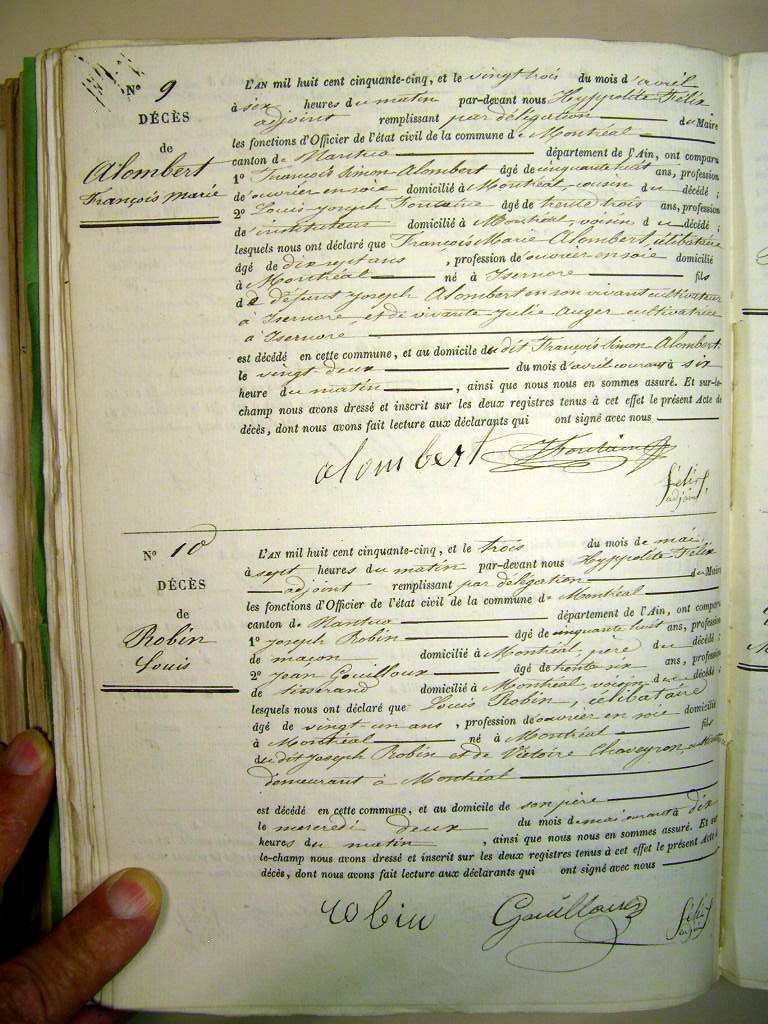 N° 9
DÉCÈS
de
Alombert
François Marie
L'AN mil huit cent cinquante-cinq, et le vingt trois du mois d'avril
à six heures du matin par-devant nous Hyppolite Félix
adjoint remplissant par délégation du Maire
les fonctions d'Officier de l'état civil de la commune de Montréal
canton de Nantua département de l'Ain, ont comparu
1° François Simon Alombert âgé de cinquante huit ans, profession
d'ouvrier en soie domicilié à Montréal, cousin du décédé ;
2° Louis Joseph Fontaine âgé de trente trois ans, profession
d'instituteur domicilié à Montréal, voisin du décédé ;
lesquels nous ont déclaré que François Marie Alombert, célibataire
âgé de dix sept ans , profession d'ouvrier en soie domicilié
à Montréal né à Isernore fils
de défunt Joseph Alombert en son vivant cultivateur
à Isernore, et de vivante Julie Auger cultivatrice
à Isernore
est décédé en cette commune, et au domicile du dit François Simon Alombert
le vingt deux du mois d'avril courant à six
heure du matin , ainsi que nous nous en sommes assuré. Et sur-le-
champ nous avons dressé et inscrit sur les deux registres tenus à cet effet le présent Acte de
décès, dont nous avons fait lecture aux déclarants qui ont signé avec nous
alombert Fontaine
félix
adjoint
N° 10
DÉCÈS
de
Robin
Louis
L'AN mil huit cent cinquante-cinq, et le trois du mois de mai,
à sept heures du matin par-devant nous Hyppolite Félix
adjoint remplissant par délégation du Maire
les fonctions d'Officier de l'état civil de la commune de Montréal
canton de Nantua département de l'Ain, ont comparu
1° Joseph Robin âgé de cinquante huit ans, profession
de maçon domicilié à Montréal, père du décédé ;
2° Jean Gouilloux âgé de trente six ans, profession
de tisserand domicilié à Montréal, voisin du décédé ;
lesquels nous ont déclaré que Louis Robin, célibataire
âgé de vingt un ans , profession d'ouvrier en soie domicilié
à Montréal né à Montréal fils
du dit Joseph Robin et de Victoire Chaveyron,
demeurant à Montréal
est décédé en cette commune, et au domicile de son père
le mercredi deux du mois de mai courant à dix
heures du matin , ainsi que nous nous en sommes assuré. Et sur-
le-champ nous avons dressé et inscrit sur les deux registres tenus à cet effet le présent Acte de
décès, dont nous avons fait lecture aux déclarants qui ont signé avec nous
robin Gouilloux félix
adjoint